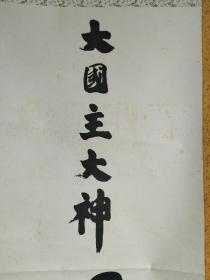 大國主大神